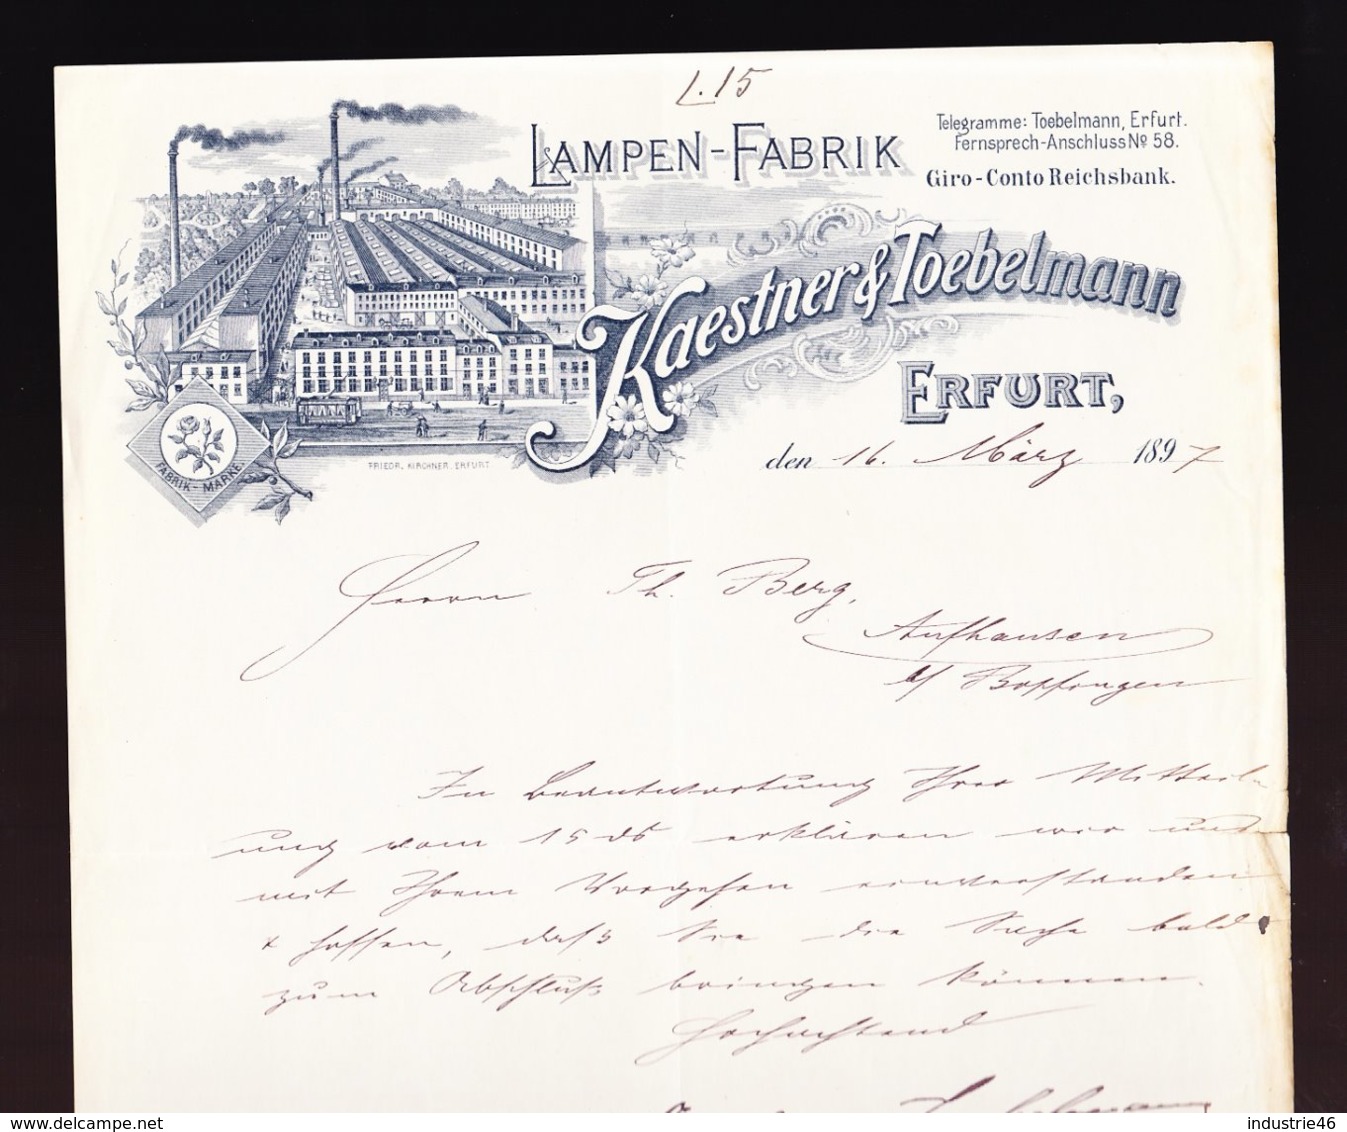 L. 15
LAMPEN-FABRIK
Telegramme: Toebelmann, Erfurt.
Fernsprech-Anschluss № 58.
Giro-Conto Reichsbank.
Kaestner & Toebelmann
ERFURT,
FABRIK-MARKE.
FRIEDR. KIRCHNER. ERFURT.
den 16. März 1897
Herrn Th. Berg,
Aufhausen
b/ Bopfingen
In Beantwortung Ihrer Mitteil-
ung vom 15 ds erklären wir uns
mit Ihrem Vorgehen einverstanden
& hoffen, daß Sie die Sache bald
zum Abschluß bringen können.
Hochachtend
www.delcampe.net
industrie46